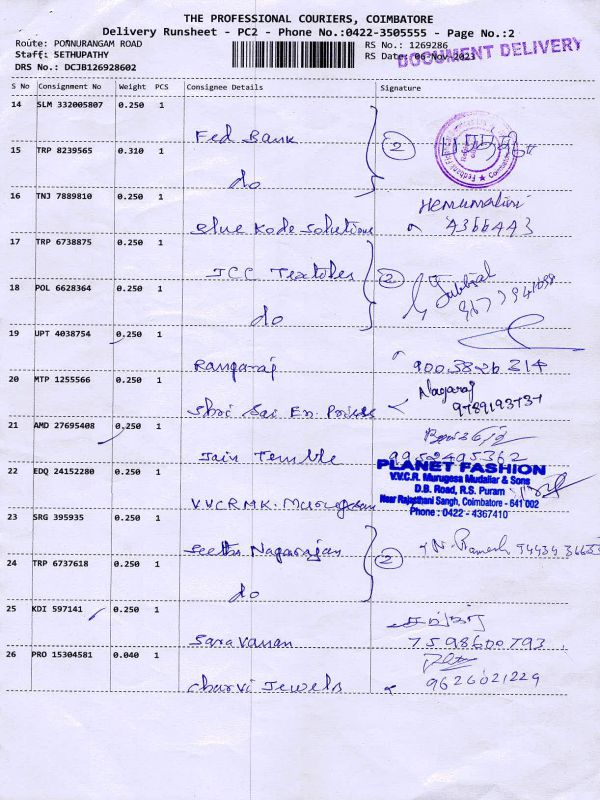 THE PROFESSIONAL COURIERS, COIMBATORE
Delivery Runsheet - PC2 - Phone No.:0422-3505555 - Page No.:2
Route: PONNURANGAM ROAD
Staff: SETHUPATHY
DRS No.: DCJB126928602
RS No.: 1269286
RS Date: 06-Nov-2023
DOCUMENT DELIVERY
S No Consignment No Weight PCS Consignee Details Signature
14 SLM 332005807 0.250 1
Fed Bank
2
15 TRP 8239565 0.310 1
do
16 TNJ 7889810 0.250 1
Hemamalini
Blue Kode Solutions 4366443
17 TRP 6738875 0.250 1
JCC Textiles
2
18 POL 6628364 0.250 1
do
19 UPT 4038754 0.250 1
Rangaraj 9003826314
20 MTP 1255566 0.250 1
Nagaraj
Shri Sai En. Prises 9789193737
21 AMD 27695408 0.250 1
Jain Temble 9952495362
22 EDQ 24152280 0.250 1
PLANET FASHION
V.V.C.R. Murugesa Mudaliar & Sons
D.B. Road, R.S. Puram
Near Rajasthani Sangh, Coimbatore - 641 002
Phone : 0422 - 4367410
V.V.C.R.M.K. Murugesan
23 SRG 395935 0.250 1
Seetha Nagarajan
N. Ramesh
2
24 TRP 6737618 0.250 1
do
25 KDI 597141 0.250 1
Saravanan 7598600793
26 PRO 15304581 0.040 1
Charvi Jewels 9626021229